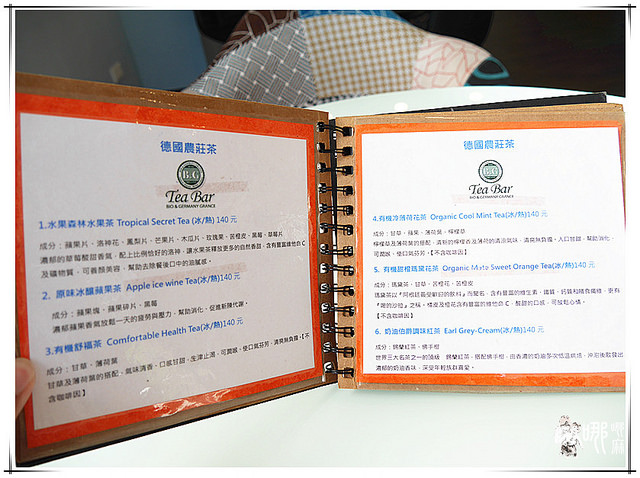 德國農莊茶
B&G
Tea Bar
BIO & GERMANY GRANCE
1.水果森林水果茶 Tropical Secret Tea (冰/熱)140 元
成分：蘋果片、洛神花、鳳梨片、芒果片、木瓜片、玫瑰果、苦橙皮、黑莓、草莓片
濃郁的草莓酸甜香氣，配上比例恰好的洛神，讓水果茶釋放更多的自然香甜，含有豐富維他命 C
及礦物質，可養顏美容、幫助去除餐後口中的油膩感。
2. 原味冰釀蘋果茶 Apple ice wine Tea(冰/熱)140 元
成分：蘋果塊、蘋果碎片、黑莓
濃郁蘋果香氣放鬆一天的疲勞與壓力，幫助消化、促進新陳代謝。
3.有機舒福茶 Comfortable Health Tea(冰/熱)140 元
成分：甘草、薄荷葉
甘草及薄荷葉的搭配，氣味清香、口感甘甜、生津止渴、可潤喉、使口氣芬芳、清爽無負擔。【不
含咖啡因】
德國農莊茶
B&G
Tea Bar
BIO & GERMANY GRANCE
4.有機冷薄荷花茶 Organic Cool Mint Tea(冰/熱)140 元
成分：甘草、蘋果、薄荷葉、檸檬草
檸檬草及薄荷葉的搭配，清新的檸檬香及薄荷的清涼氣味，清爽無負擔，入口甘甜，幫助消化、
可潤喉、使口氣芬芳。【不含咖啡因】
5. 有機甜橙瑪黛花茶 Organic Mate Sweet Orange Tea(冰/熱)140 元
成分：瑪黛茶、甘草、苦橙花、苦橙皮
瑪黛茶以『阿根廷最受歡迎的飲料』而聞名，含有豐富的維生素、鐵質、鈣質和膳食纖維，更有
『喝的沙拉』之稱。橘皮及橙花含有豐富的維他命 C，酸甜的口感，可放鬆心情。
【不含咖啡因】
6. 奶油伯爵調味紅茶 Earl Grey-Cream(冰/熱)140 元
成分：錫蘭紅茶、佛手柑
世界三大名茶之一的頂級 錫蘭紅茶，搭配佛手柑，由香濃的奶油多次低溫烘焙，沖泡後散發出
濃郁的奶油香味，深受年輕族群喜愛。